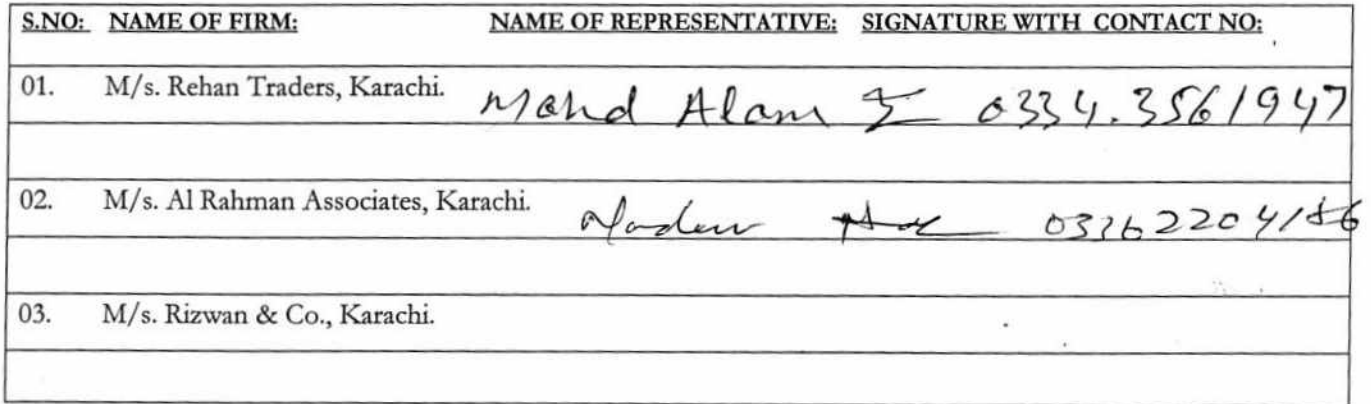 S.NO: NAME OF FIRM: NAME OF REPRESENTATIVE: SIGNATURE WITH CONTACT NO:
01. M/s. Rehan Traders, Karachi. Mohd Alam 0334.3561947
02. M/s. Al Rahman Associates, Karachi.
03. M/s. Rizwan & Co., Karachi.